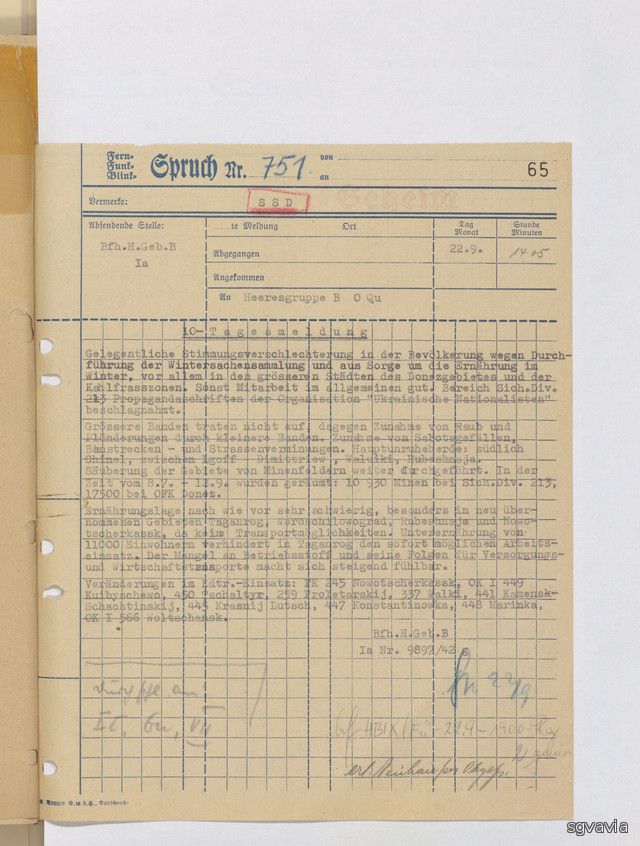 Fern=
Funk=
Blink=
Spruch Nr. 751
von
an
65
Vermerke:
SSD
Geheim
Absendende Stelle:
Bfh.H.Geb.B
Ia
te Meldung
Ort
Tag
Monat
Stunde
Minuten
Abgegangen
22.9.
1405
Angekommen
An Heeresgruppe B O Qu
10- Tagesmeldung
Gelegentliche Stimmungsverschlechterung in der Bevölkerung wegen Durch-
führung der Wintersachensammlung und aus Sorge um die Ernährung im
Winter, vor allem in den grösseren Städten des Donezgebietes und der
Kahlfrasszonen. Sonst Mitarbeit im allgemeinen gut. Bereich Sich.Div.
213 Propagandaschriften der Organisation "Ukrainische Nationalisten"
beschlagnahmt.
Grössere Banden traten nicht auf, dagegen Zunahme von Raub und
Plünderungen durch kleinere Banden. Zunahme von Sabotagefällen,
Bahnstrecken - und Strassenverminungen. Hauptunruheherde: südlich
Chinel, zwischen Lgoff - Dimittriew, Waluiki, Rubeshnaja.
Säuberung der Gebiete von Minenfeldern weiter durchgeführt. In der
Zeit vom 8.7. - 12.9. wurden geräumt: 10 930 Minen bei Sich.Div. 213,
17500 bei OFK Donez.
Ernährungslage nach wie vor sehr schwierig, besonders in neu über-
nommenen Gebieten Taganrog, Woroschilowograd, Rubeshnaja und Nowo-
tscherkassk, da keine Transportmöglichkeiten. Unterernährung von
11000 Einwohnern verhindert in Taganrog den sofort möglichen Arbeits-
einsatz. Der Mangel an Betriebsstoff und seine Folgen für Versorgungs-
und Wirtschaftstransporte macht sich steigend fühlbar.
Veränderungen im Kdtr.-Einsatz: FK 245 Nowotscherkassk, OK I 449
Kuibyschewo, 450 Tschaltyr, 259 Proletarskij, 337 Walki, 441 Kamensk-
Schachtinskij, 445 Krasnij Lutsch, 447 Konstantinowka, 448 Marinka,
OK I 566 Woltschansk.
Bfh.H.Geb.B
Ia Nr. 9897/42 g
22/9
an
Ic, Qu, VII
22.9. - 1900 -
erl. Neuhauser Obgefr.
sgvavia